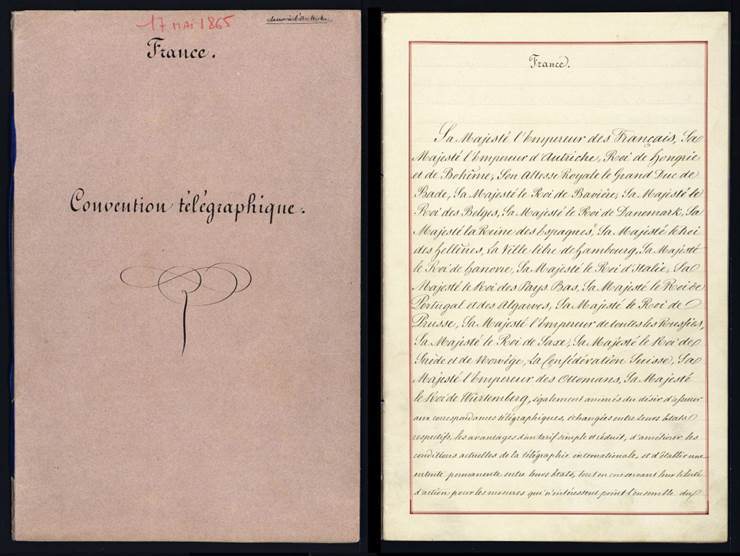 17 MAI 1865
France.
Convention télégraphique.
France.
Sa Majesté l'Empereur des Français, Sa
Majesté l'Empereur d'Autriche, Roi de Hongrie
et de Bohême, Son Altesse Royale le Grand Duc de
Bade, Sa Majesté le Roi de Bavière, Sa Majesté le
Roi des Belges, Sa Majesté le Roi de Danemark, Sa
Majesté la Reine des Espagnes, Sa Majesté le Roi
des Hellènes, la Ville libre de Hambourg, Sa Majesté
le Roi de Hanovre, Sa Majesté le Roi d'Italie, Sa
Majesté le Roi des Pays Bas, Sa Majesté le Roi de
Portugal et des Algarves, Sa Majesté le Roi de
Prusse, Sa Majesté l'Empereur de toutes les Russies,
Sa Majesté le Roi de Saxe, Sa Majesté le Roi de
Suède et de Norwège, la Confédération Suisse, Sa
Majesté l'Empereur des Ottomans, Sa Majesté
le Roi de Würtemberg, également animés du désir d'assurer
aux correspondances télégraphiques, échangées entre leurs Etats
respectifs, les avantages d'un tarif simple et réduit, d'améliorer les
conditions actuelles de la télégraphie internationale, et d'établir une
entente permanente entre leurs Etats, tout en conservant leur liberté
d'action pour les mesures qui n'intéressent point l'ensemble du